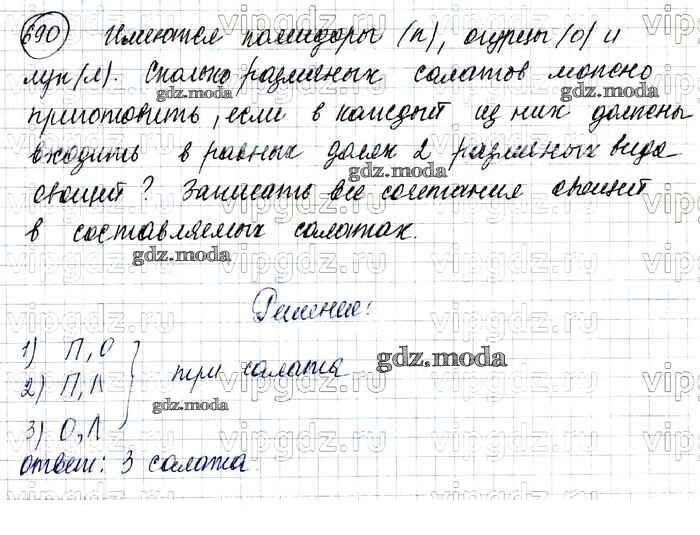 690 Имеются помидоры (п), огурцы (о) и
лук (л). Сколько различных салатов можно
приготовить, если в каждый из них должны
входить в равных долях 2 различных вида
овощей? Записать все сочетания овощей
в составляемых салатах.
Решение:
1) П, О
2) П, Л
3) О, Л
три салата
ответ: 3 салата
vipgdz.ru
gdz.moda